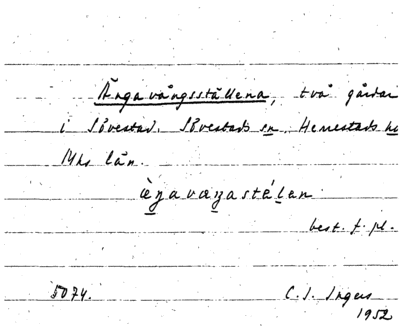 Ängavångsställena, två gårdar
i Sövestad. Sövestads sn Herrestads hd
Mhs län.
best. f. pl.
5074. C. I. Ingers
1952